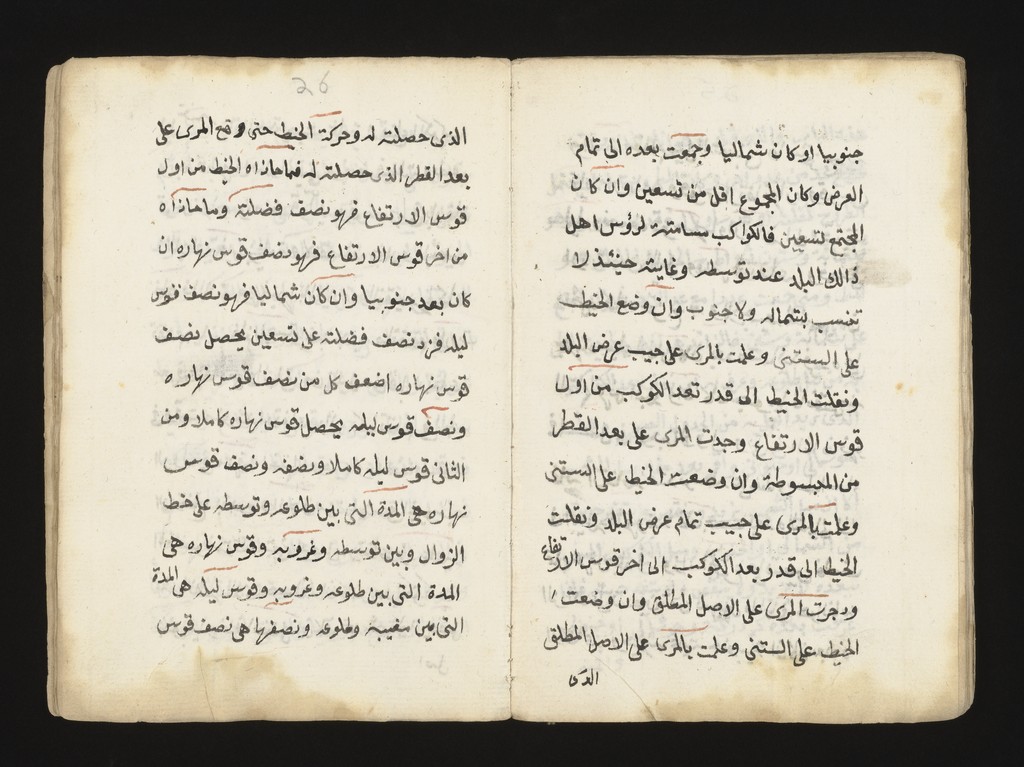 جنوبيا او كان شماليا وجمعت بعده الى تمام
العرض وكان المجموع اقل من تسعين وان كان
المجتمع تسعين فالكواكب مسامتة لرؤس اهل
ذالك البلد عند توسطه وغايته حينئذ لا
تنسب بشماله ولا جنوب وان وضع الخيط
على الستنى وعلمت بالمرى على جيب عرض البلد
ونقلت الخيط الى قدر بعد الكوكب من اول
قوس الارتفاع وجدت المرى على بعد القطر
من المبسوطة وان وضعت الخيط على الستنى
وعلمت بالمرى على جيب تمام عرض البلد ونقلت
الخيط الى قدر بعد الكوكب الى اخر قوس الارتفاع
وجدت المرى على الاصل المطلق وان وضعت
الخيط على الستنى وعلمت بالمرى على الاصل المطلق
الذى
26
الذى حصلته له وحركة الخيط حتى وقع المرى على
بعد القطر الذى حصلته له فما حاذاه الخيط من اول
قوس الارتفاع فهو نصف فضلته وما حاذاه
من اخر قوس الارتفاع فهو نصف قوس نهاره ان
كان بعد جنوبيا وان كان شماليا فهو نصف قوس
ليله فزد نصف فضلته على تسعين يحصل نصف
قوس نهاره اضعف كل من نصف قوس نهاره
ونصف قوس ليله يحصل قوس نهاره كاملا ومن
الثانى قوس ليله كاملا ونصفه ونصف قوس
نهاره هى المدة التى بين طلوعه وتوسطه على خط
الزوال وبين توسطه وغروبه وقوس نهاره هى
المدة التى بين طلوعه وغروبه وقوس ليله هى المدة
التى بين مغيبه وطلوعه ونصفها هى نصف قوس